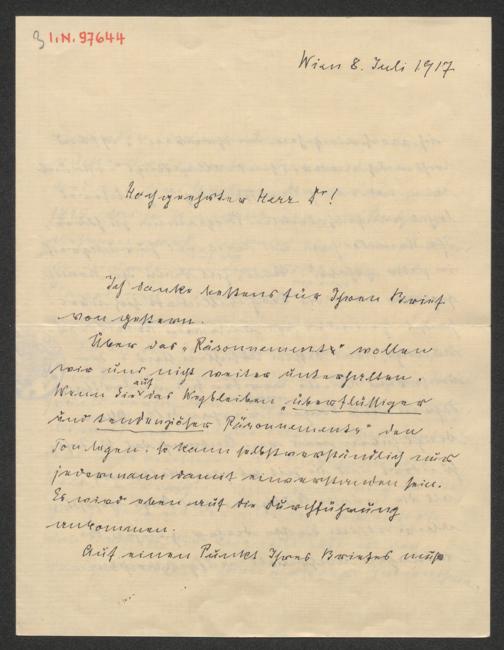 3 I.N. 97644
Wien 8. Juli 1917
Hochgeehrter Herr Dr!
Ich danke bestens für Ihren Brief
von gestern.
Über das „Räsonnement“ wollen
wir uns nicht weiter unterhalten.
auf
Wenn Sie das Wegbleiben „überflüssiger
und tendenziöser Räsonnements“ den
Ton legen, so kann selbstverständlich nur
jedermann damit einverstanden sein.
Es wird eben auf die Durchführung
ankommen.
Auf einen Punkt Ihres Briefes muß